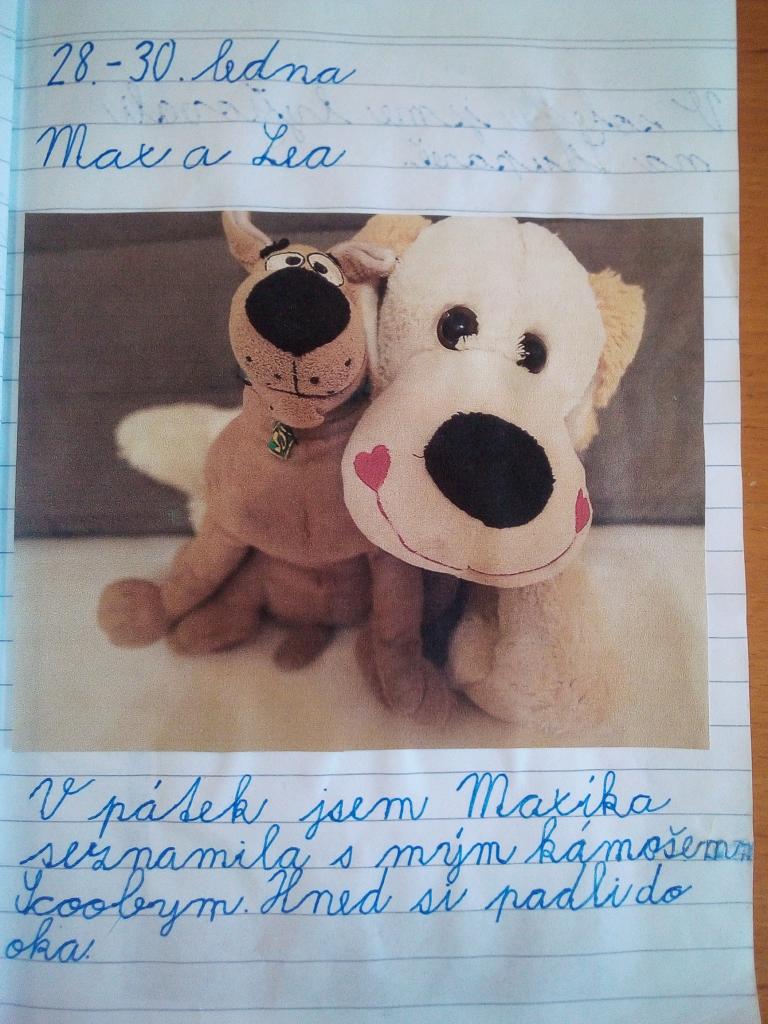 28.-30. ledna
Max a Lea
V pátek jsem Maxíka
seznamila s mým kámošem
Scoobym. Hned si padli do
oka.